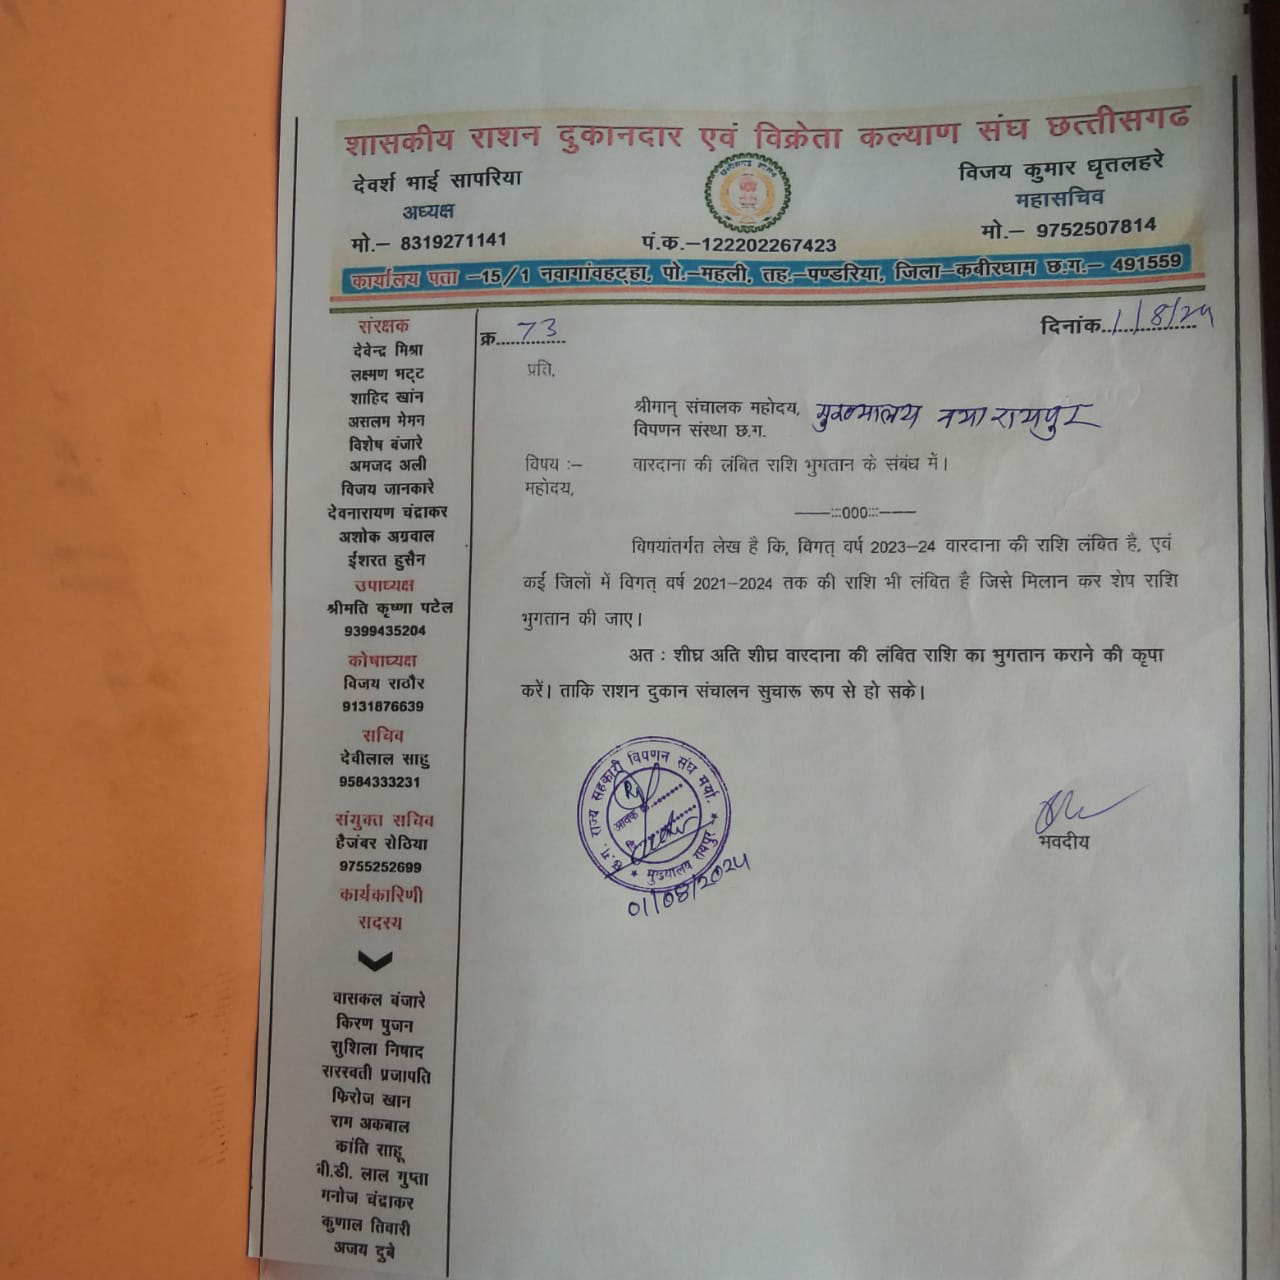 शासकीय राशन दुकानदार एवं विक्रेता कल्याण संघ छत्तीसगढ
देवर्श भाई सापरिया
अध्यक्ष
मो.– 8319271141
छत्तीसगढ़ शासन
पं.क.–122202267423
विजय कुमार धृतलहरे
महासचिव
मो.– 9752507814
कार्यालय पता –15/1 नवागांवहट्हा, पो.–महली, तह.–पण्डरिया, जिला–कबीरधाम छ.ग.– 491559
संरक्षक
देवेन्द्र मिश्रा
लक्ष्मण भट्ट
शाहिद खांन
असलम मेमन
विशेष बंजारे
अमजद अली
विजय जानकारे
देवनारायण चंद्राकर
अशोक अग्रवाल
ईशरत हुसैन
उपाध्यक्ष
श्रीमति कृष्णा पटेल
9399435204
कोषाध्यक्ष
विजय राठौर
9131876639
सचिव
देवीलाल साहु
9584333231
संयुक्त सचिव
हैजंबर रोठिया
9755252699
कार्यकारिणी
सदस्य
वासकल बंजारे
किरण पुजन
सुशिला निषाद
सरस्वती प्रजापति
फिरोज खान
राम अकबाल
कांति साहू
बी.डी. लाल गुप्ता
मनोज चंद्राकर
कुणाल तिवारी
अजय दुबे
क्र. 73
दिनांक. 1/8/24
प्रति,
श्रीमान् संचालक महोदय, मुख्यालय नया रायपुर
विपणन संस्था छ.ग.
विषय :– वारदाना की लंबित राशि भुगतान के संबंध में।
महोदय,
——:::000:::——
विषयांतर्गत लेख है कि, विगत् वर्ष 2023–24 वारदाना की राशि लंबित है, एवं
कई जिलों में विगत् वर्ष 2021–2024 तक की राशि भी लंबित है जिसे मिलान कर शेष राशि
भुगतान की जाए।
अत : शीघ्र अति शीघ्र वारदाना की लंबित राशि का भुगतान कराने की कृपा
करें। ताकि राशन दुकान संचालन सुचारू रूप से हो सके।
छ.ग. राज्य सहकारी विपणन संघ मर्या.
आवक
मुख्यालय रायपुर
01/08/2024
भवदीय